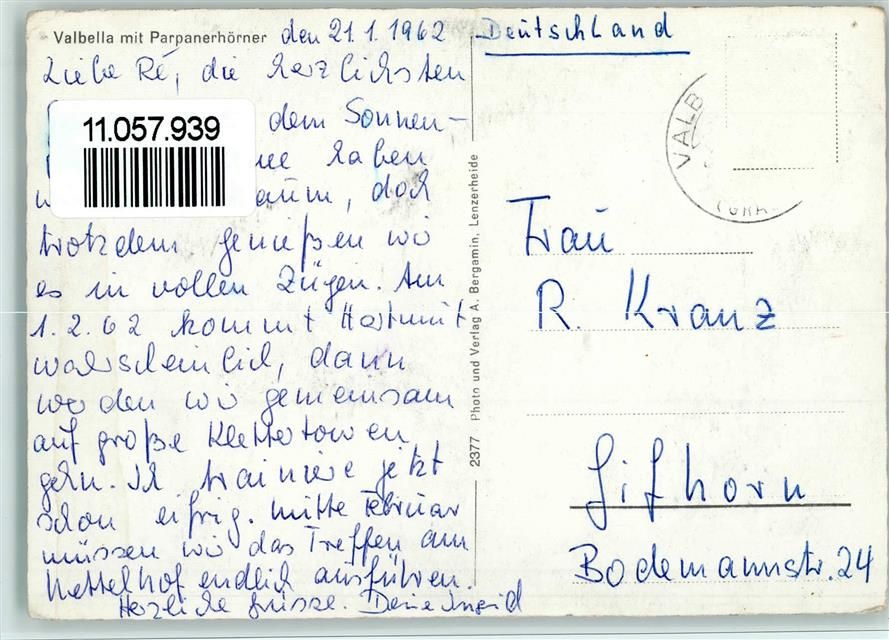 Valbella mit Parpanerhörner den 21.1.1962
Liebe Ré, die herzlichsten
dem Sonnen-
11.057.939
haben
doch
trotzdem genießen wir
es in vollen Zügen. Am
1.2.62 kommt Hartmut
warscheinlich, dann
werden wir gemeinsam
auf große Klettertouren
gehn. Ich trainiere jetzt
schon eifrig. Mitte Februar
müssen wir das Treffen am
Nettelhof endlich ausführen.
Herzliche Grüsse. Deine Ingrid
2377 Photo und Verlag A. Bergamin, Lenzerheide
Deutschland
VALB
Frau
R. Kranz
Gifhorn
Bodemannstr. 24